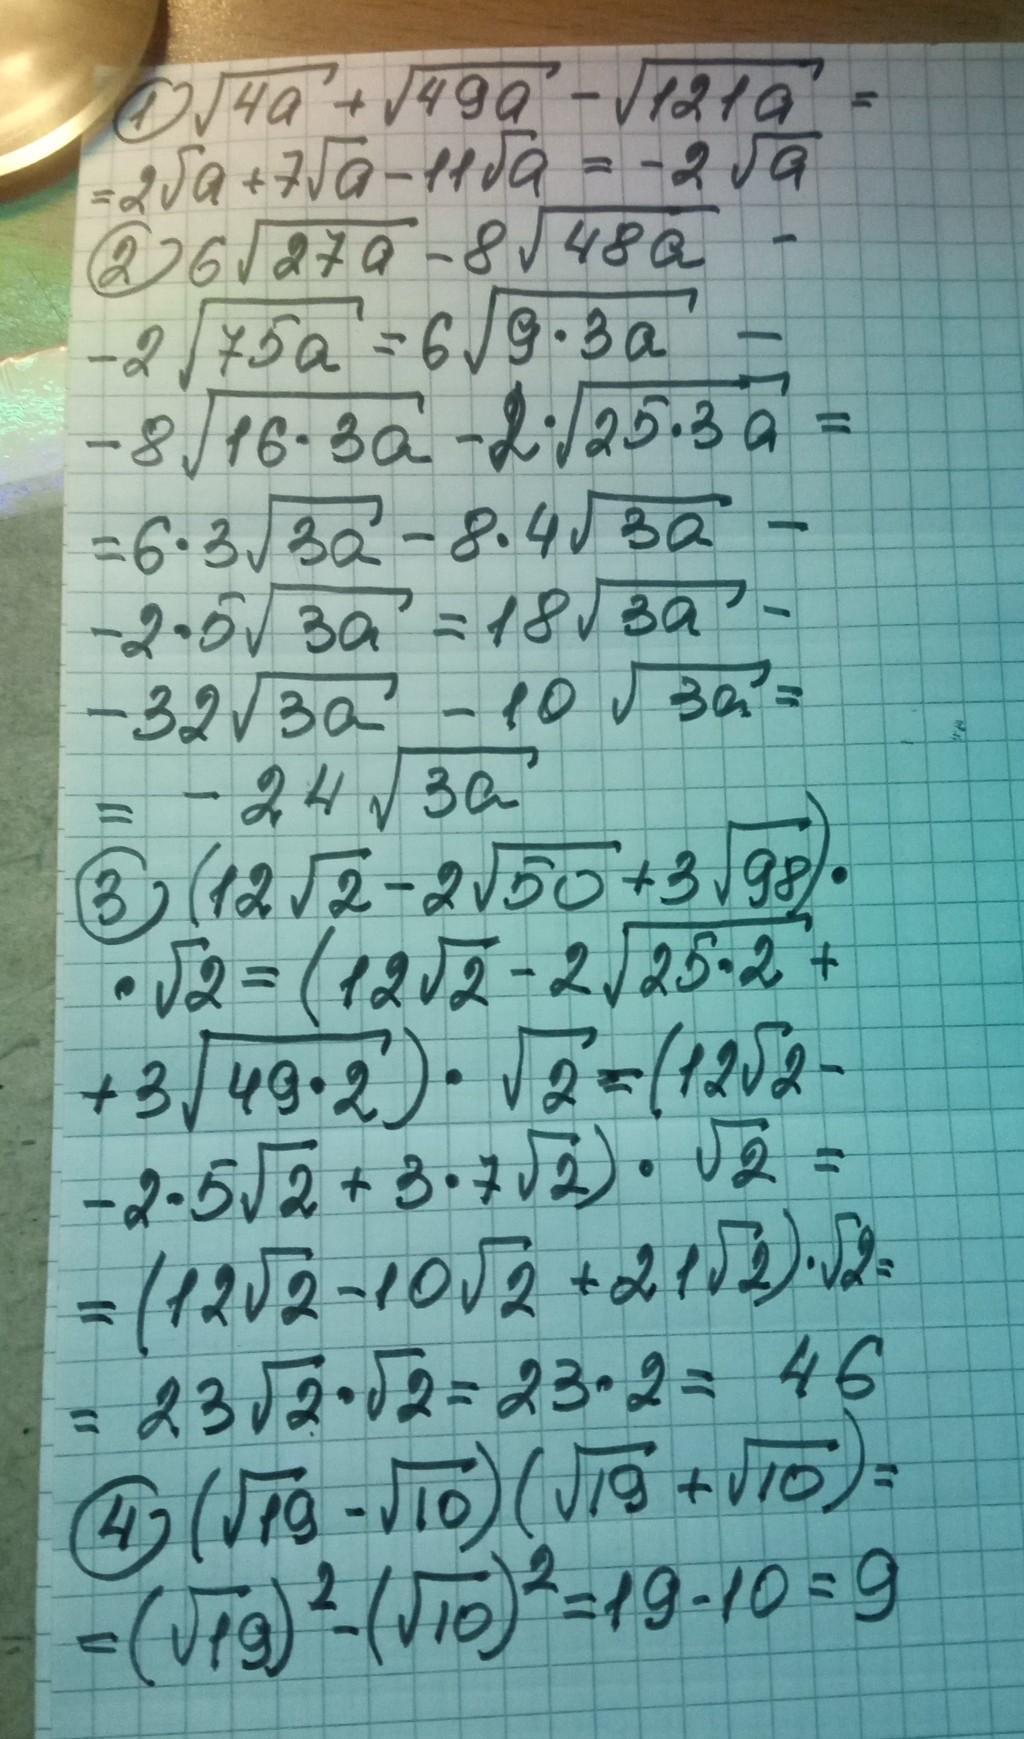 1) √4a + √49a - √121a =
= 2√a + 7√a - 11√a = -2√a
2) 6√27a - 8√48a -
- 2√75a = 6√9·3a -
- 8√16·3a - 2·√25·3a =
= 6·3√3a - 8·4√3a -
- 2·5√3a = 18√3a -
- 32√3a - 10√3a =
= - 24√3a
3) (12√2 - 2√50 + 3√98)·
·√2 = (12√2 - 2√25·2 +
+ 3√49·2)·√2 = (12√2 -
- 2·5√2 + 3·7√2)·√2 =
= (12√2 - 10√2 + 21√2)·√2 =
= 23√2·√2 = 23·2 = 46
4) (√19 - √10)(√19 + √10) =
= (√19)² - (√10)² = 19 - 10 = 9